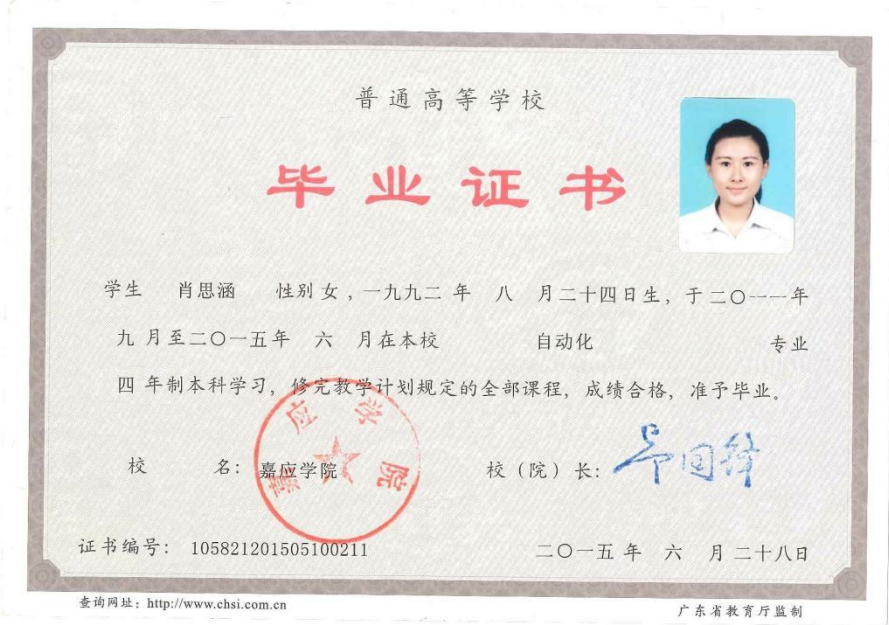 普通高等学校
毕业证书
学生 肖思涵 性别 女 ，一九九二 年 八 月二十四日生，于二〇一一年
九 月至二〇一五年 六 月在本校 自动化 专业
四 年制本科学习，修完教学计划规定的全部课程，成绩合格，准予毕业。
校 名： 嘉应学院 校（院）长：
嘉应学院
证书编号： 105821201505100211 二〇一五 年 六 月 二十八日
查询网址：http://www.chsi.com.cn 广东省教育厅监制